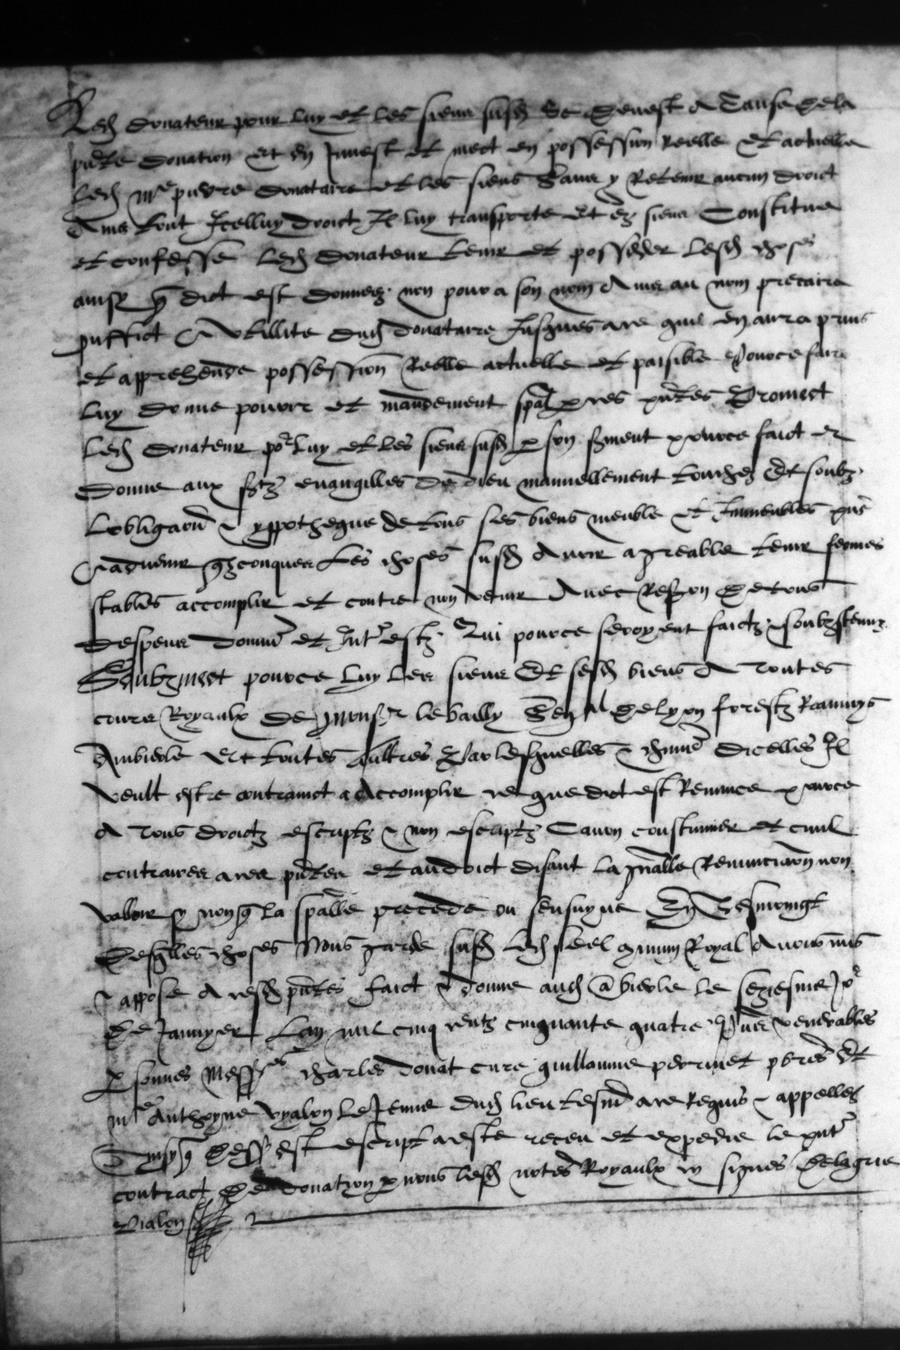 Led donateur pour luy et les siens susd se devest a cause de la
pnte donation et en Invest et mect en possession reelle et actuelle
led me pierre donataire et les siens sans y retenir aucun droict
Ains tout Icelluy droict Il luy transporte et es siens Constitue
et confesse led donateur tenir et posseder lesd choses
ainsi q dict est donnees non pour a son nom Ains au nom precaire
proffict & utillite dud donataire Jusques a ce quil en aura prins
et apprehende possession reelle actuelle et paisible Pource faire
luy donne pouvoir et mandement spal p ces pntes Promect
led donateur por luy et les siens susd p son serment pource faict et
donne aux sts evangilles de dieu manuellement touches et soubz
Lobligaon & yppotheque de tous ses biens meuble et Immeubles pns
& advenir qzconques les choses susd Avoir agreable tenir fermes
stables accomplir et contre non venir Avec reston de tous
despens dommes et Intestz Qui pource seroyent faictz soubstenuz
Soubzmect pource luy les siens et sesd biens A toutes
cours Royaulx de monsr le bailly de forestz
Ambierle et toutes aultres par lesquelles & chune dicelles Il
veult estre contrainct a Accomplir ce que dict est Renunce pource
A tous droictz escriptz & non escriptz Canon coustumier et civil
contraires a ces pntes et au droict disant la gnalle Renunciaon non
valloir sy non q la spalle precede ou sensuyve En tesmoingt
desqlles choses Nous garde susd led seel commun Royal Avons mis
& appose A cesd pntes faict & donne aud Ambierle le sezesme Jor
de Janvyer Lan mil cinq centz cinquante quatre Pns venerables
psonnes messrs charles donat cure guillaume perrinet pbres et
me Anthoyne vyalon le Jeune dud lieu tesmes a ce Requis & appelles
Ainsy q dess est escript a este receu et expedie le pnt
contract de donation p nous lesd notes Royaulx cy signes Delagrue
Vialon